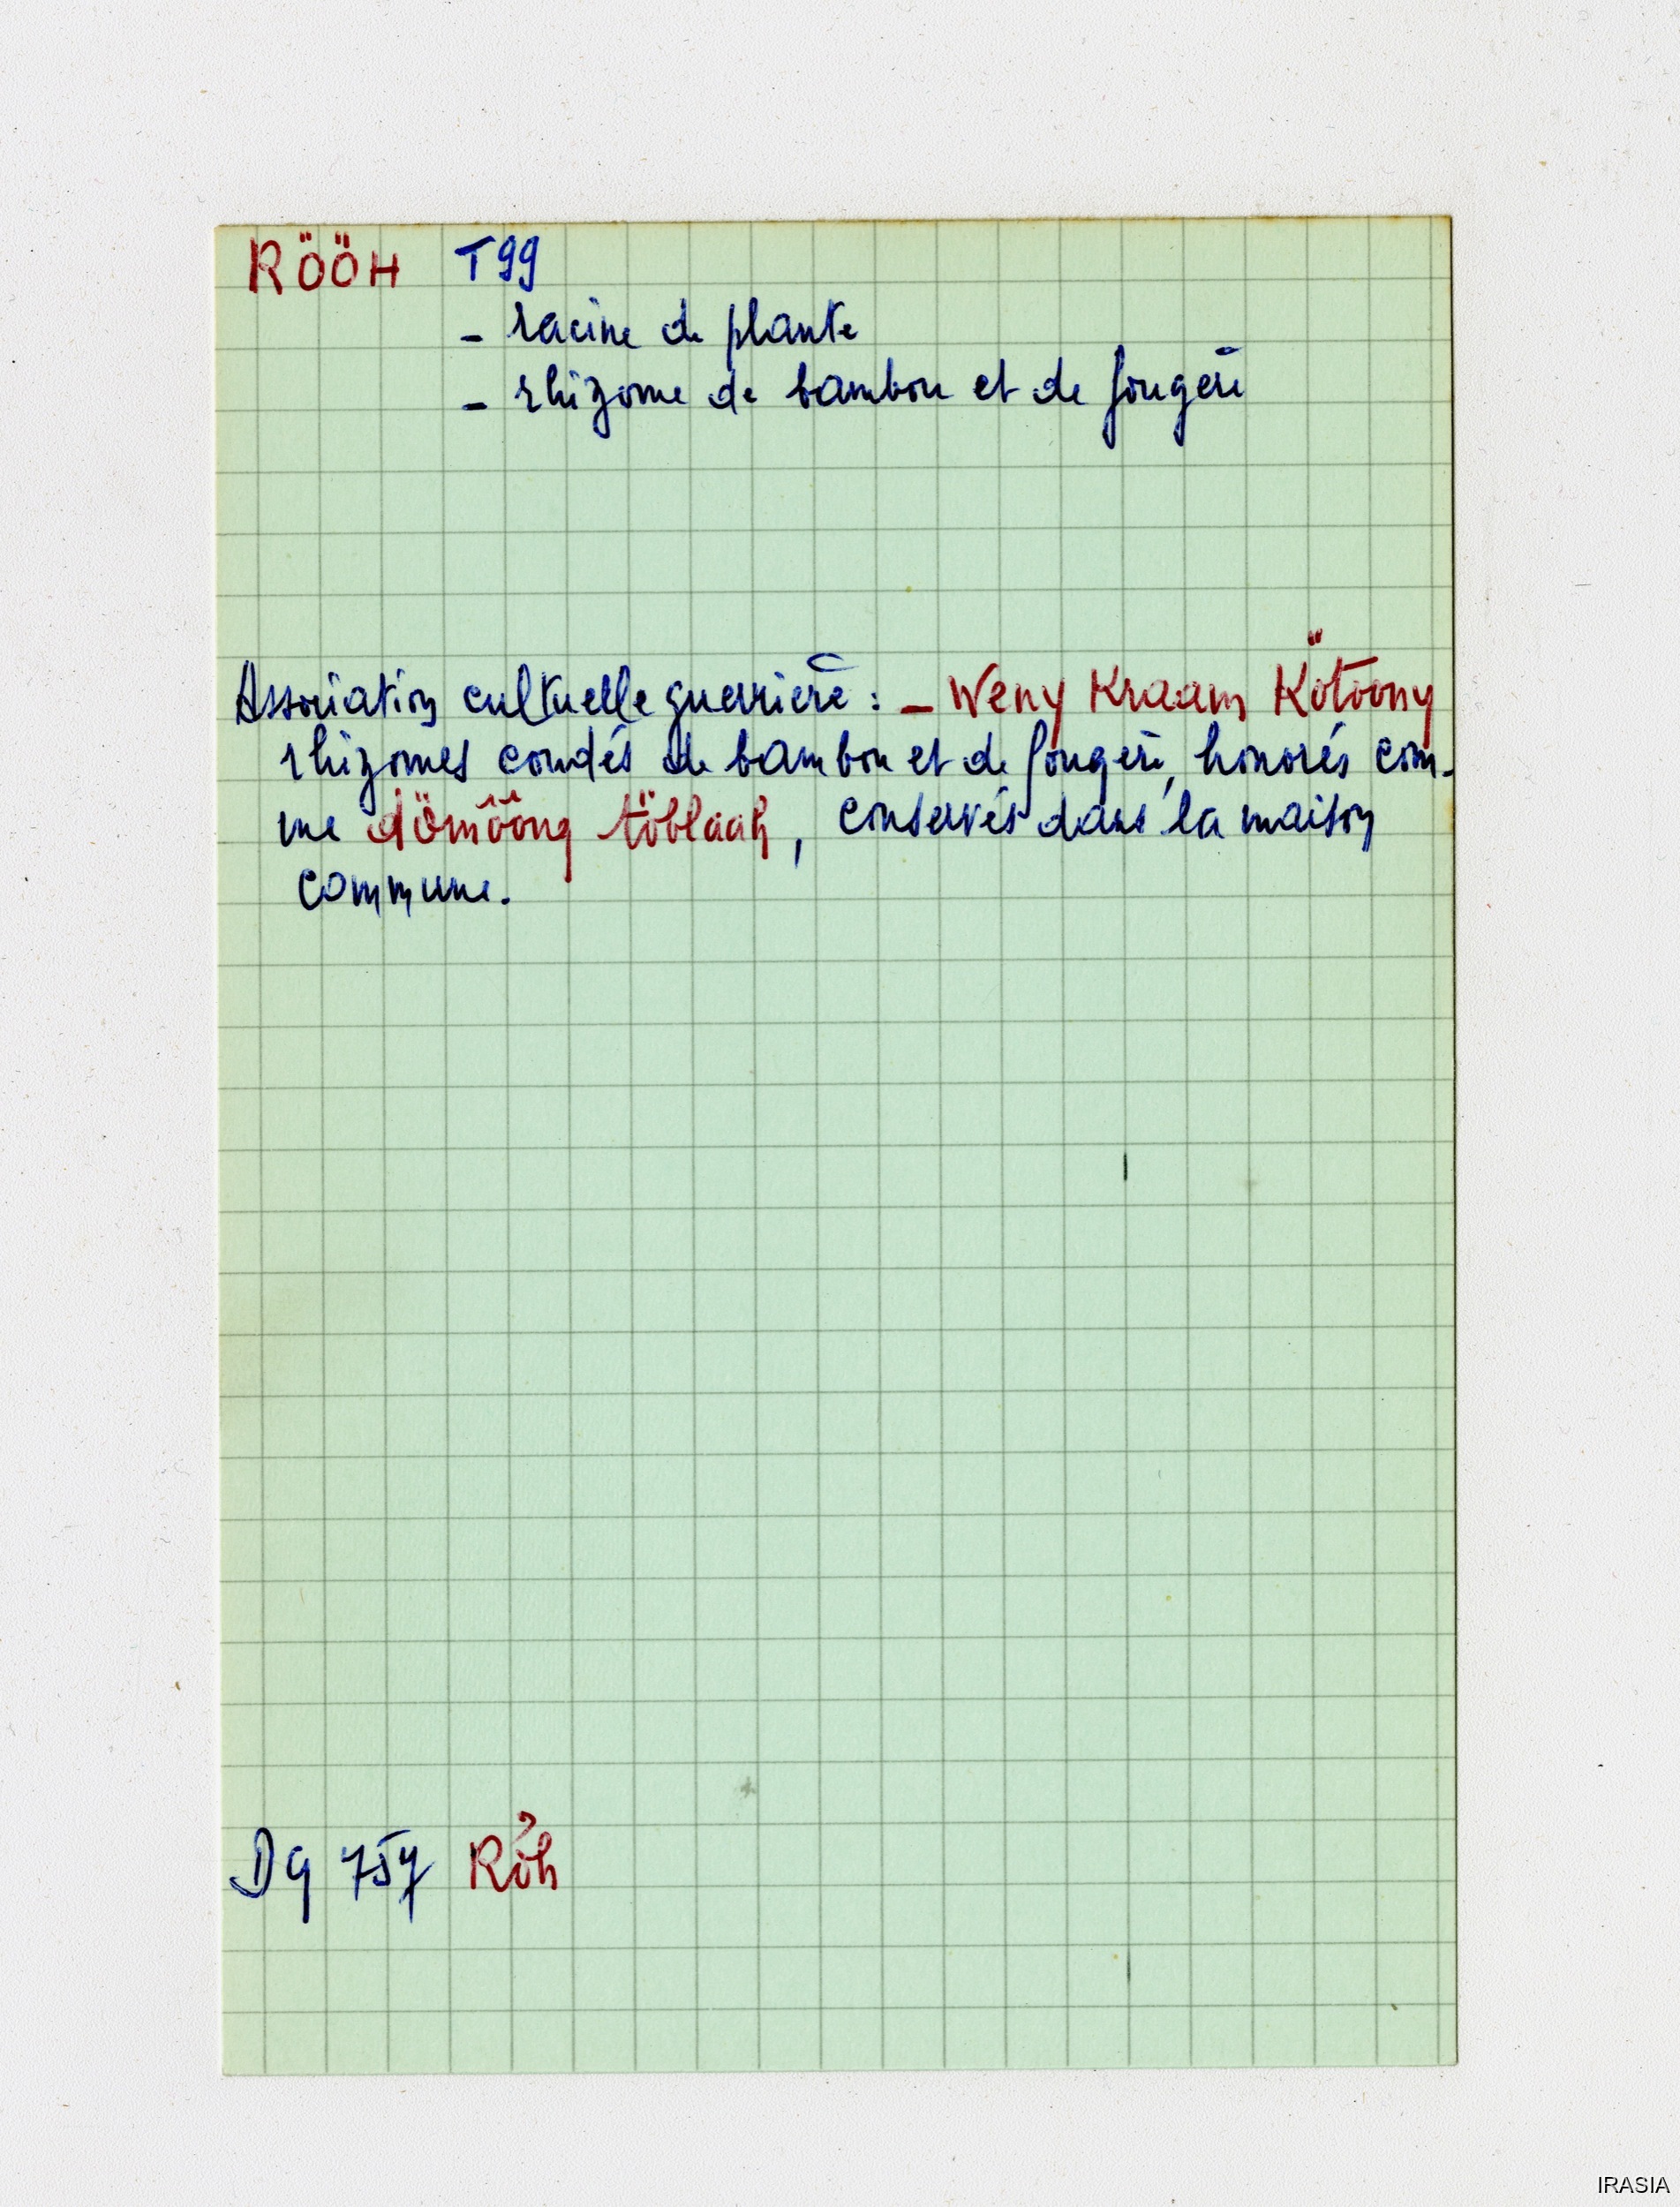 RÖÖH T99
- racine de plante
- rhizome de bambou et de fougère
Association cultuelle guerrière : - Weny Kraam Kötoong
rhizomes coudés de bambou et de fougère, honorés com-
me dömôông töblaah, conservés dans la maison
commune.
Dg 757
IRASIA